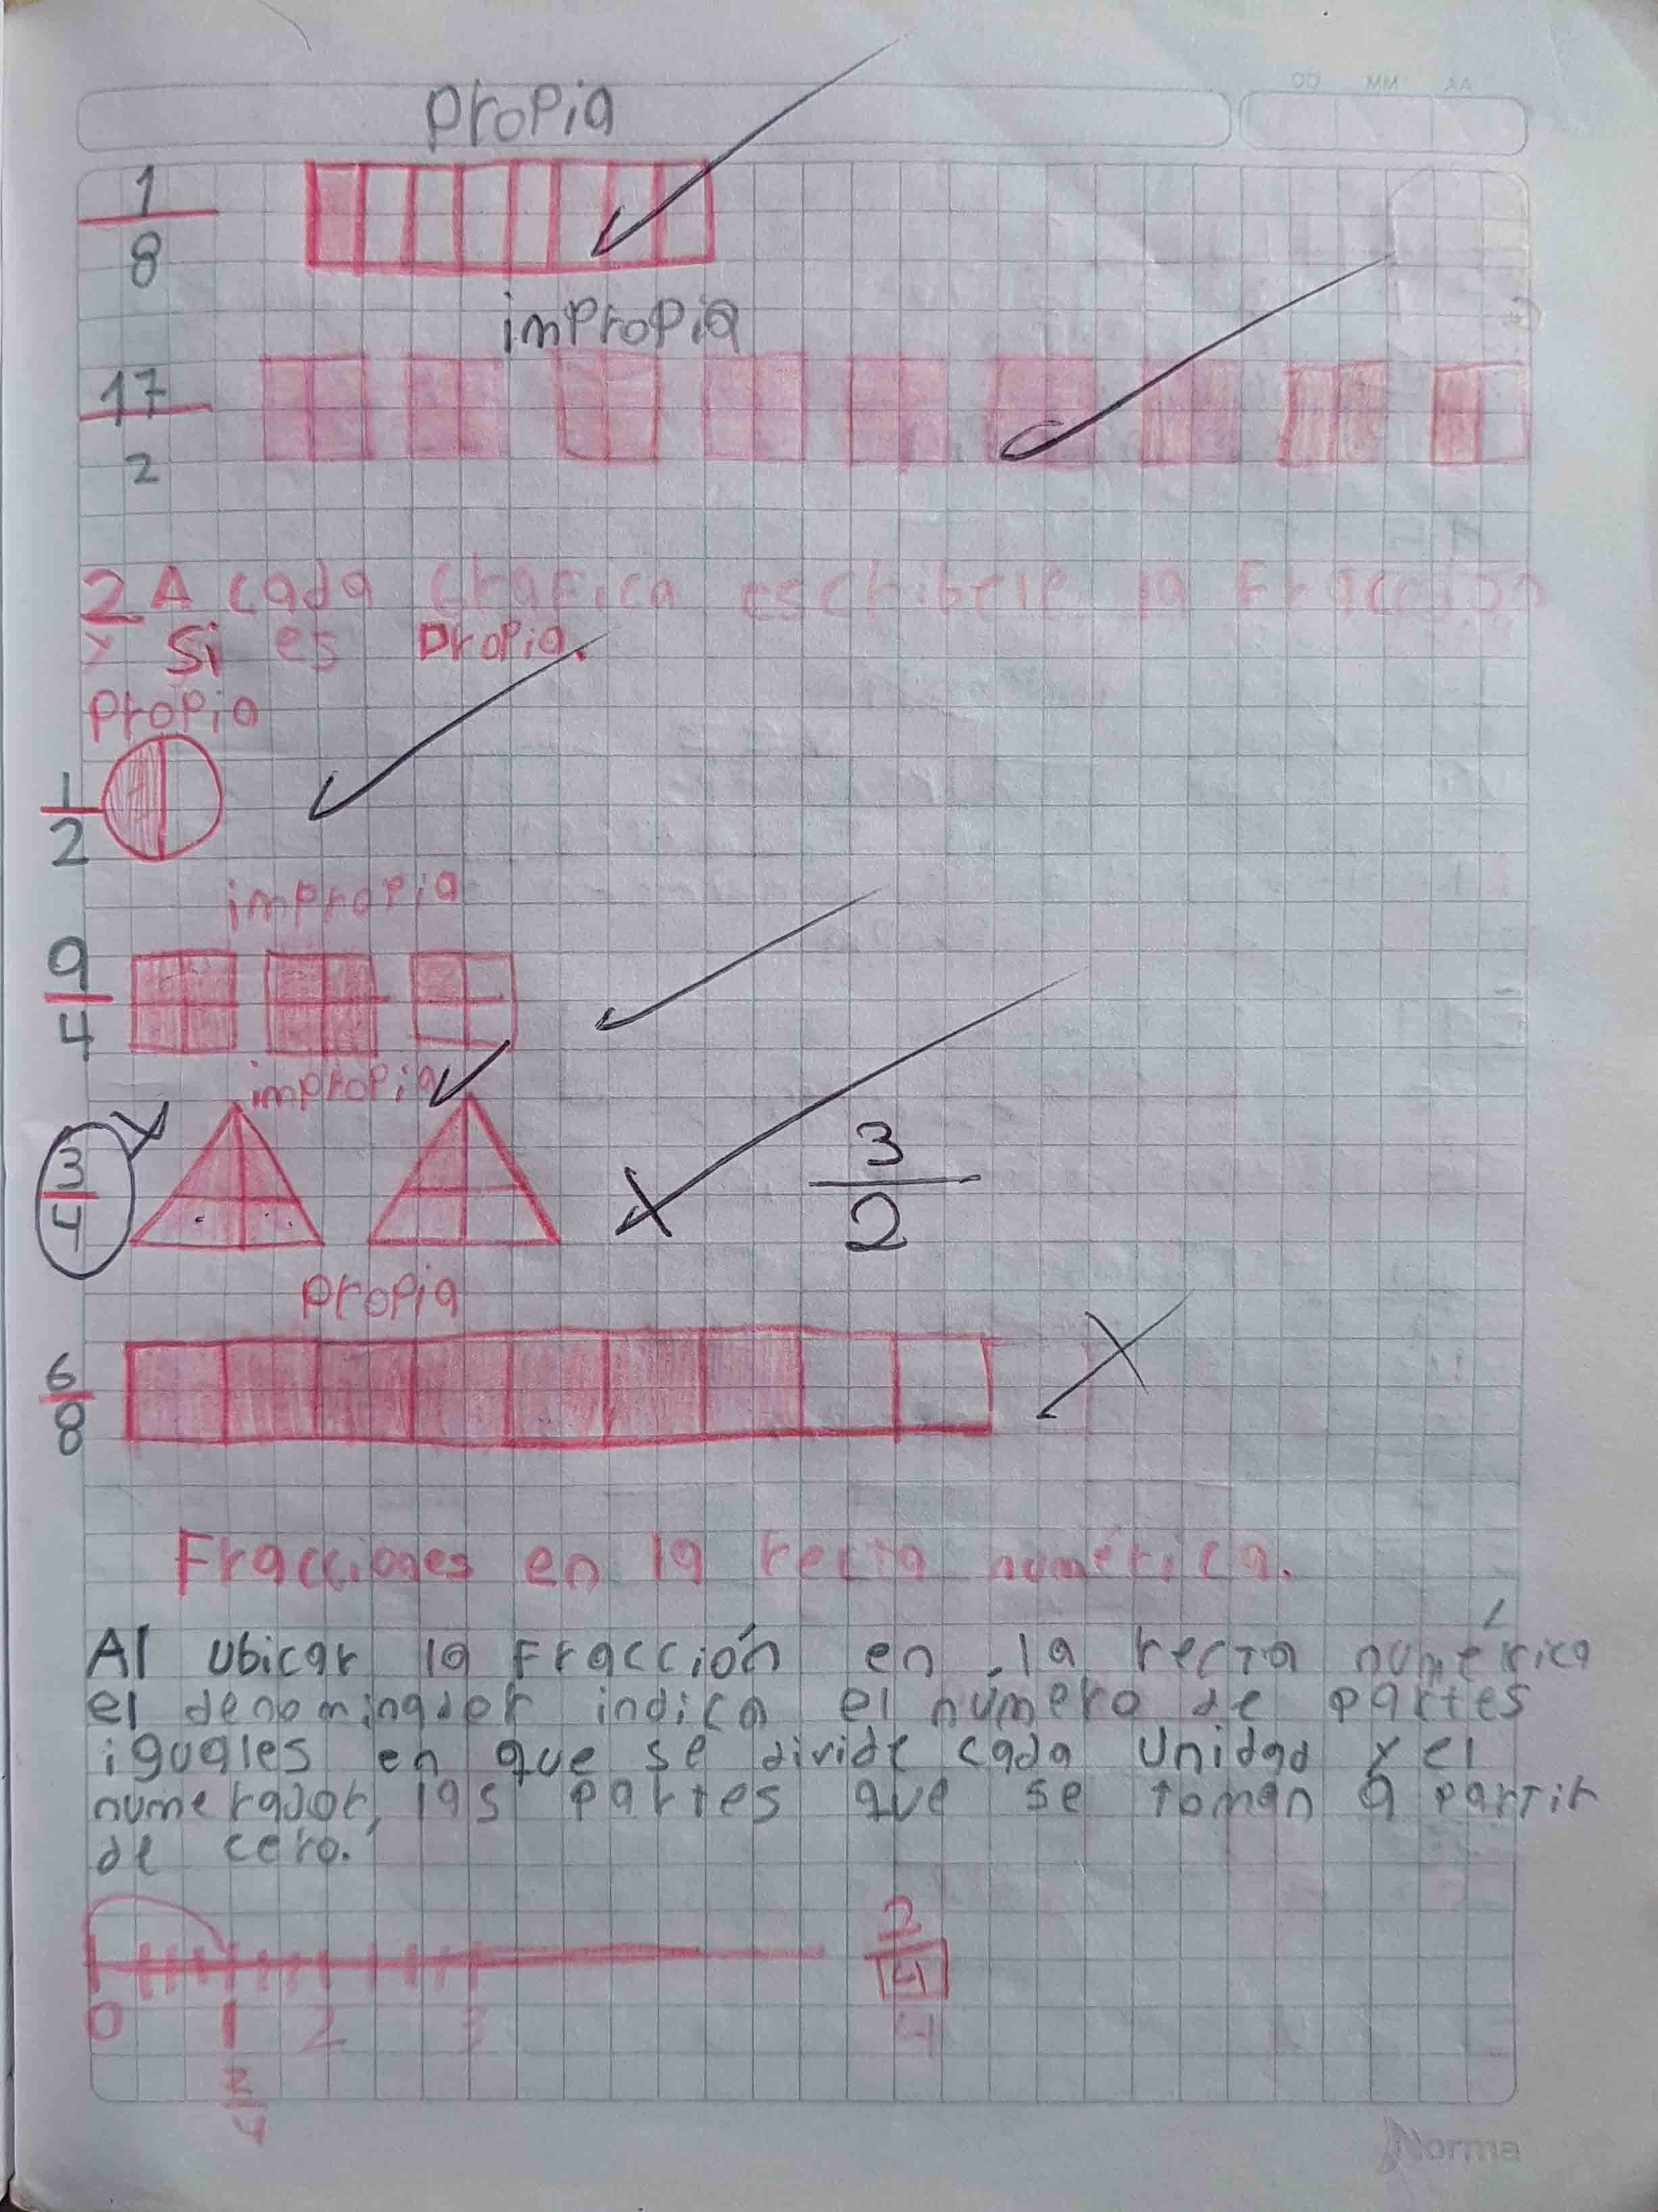 DD MM AA
propia
1
8
impropia
17
2
2 A cada Grafica escribele la Fracción
y si es propia.
propia
1
2
impropia
9
4
impropia
3
4
3
2
propia
6
8
Fracciones en la recta numérica.
Al ubicar la Fracción en la recta numérica
el denominador indica el número de partes
iguales en que se divide cada unidad y el
numerador, las partes que se toman a partir
de cero.
2
4
4
0 1 2 3
2
4
Norma